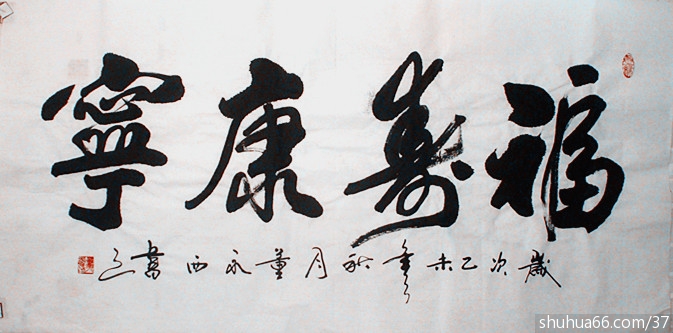 福壽康寧
歲次乙未年秋月董永西書
shuhua66.com/37